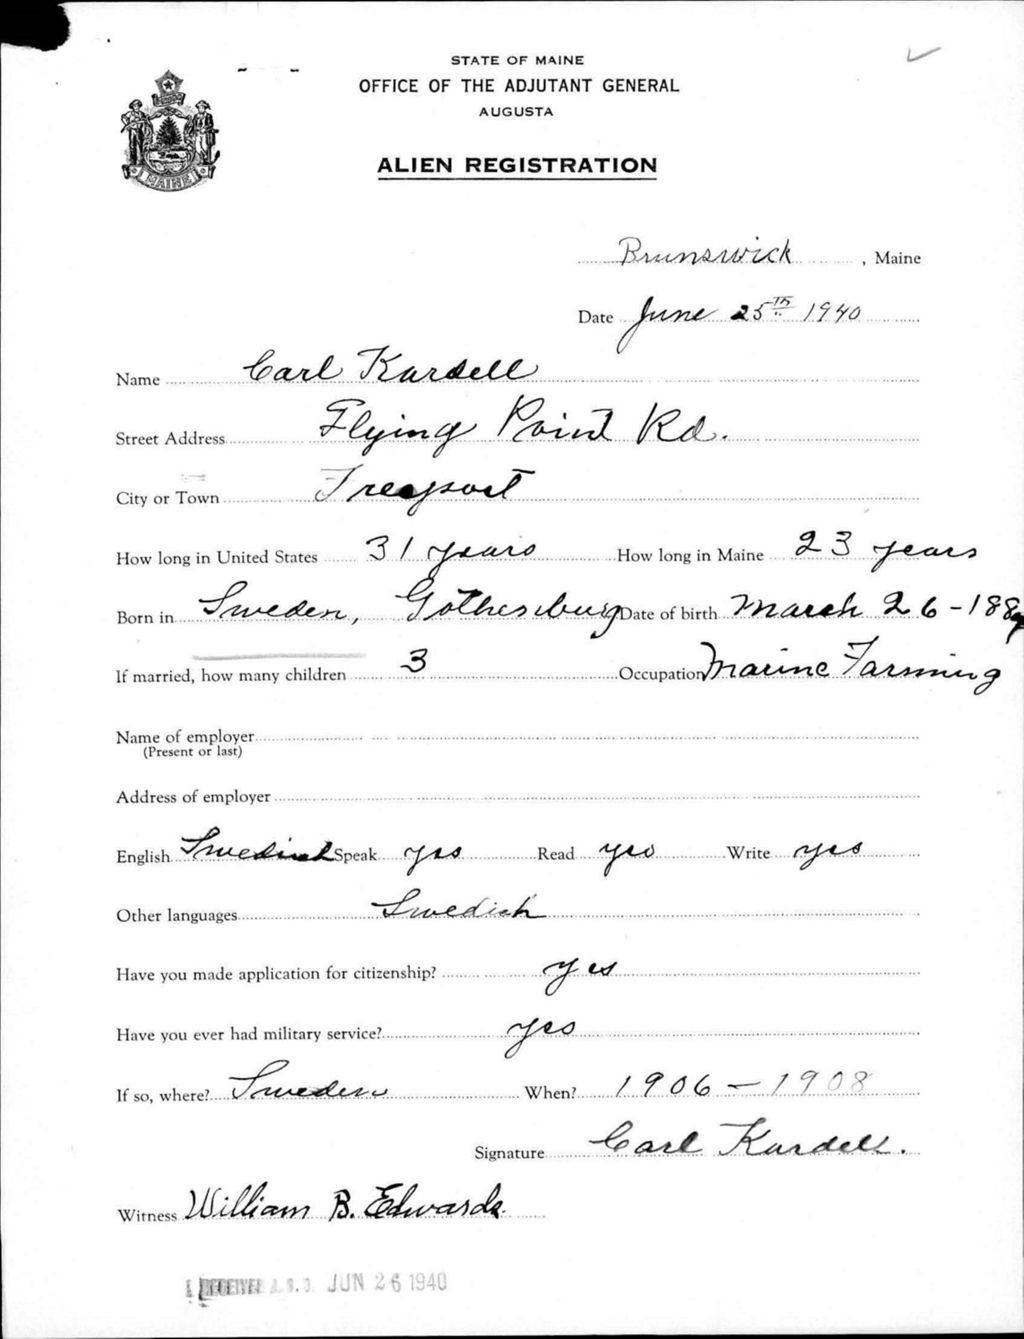 STATE OF MAINE
OFFICE OF THE ADJUTANT GENERAL
AUGUSTA
MAINE
ALIEN REGISTRATION
Brunswick, Maine
Date June 25th 1940
Name Carl Kardell
Street Address Flying Point Rd.
City or Town Freeport
How long in United States 31 years How long in Maine 23 years
Born in Sweden, Gothenburg Date of birth March 26-188
If married, how many children 3 Occupation Marine Farming
Name of employer
(Present or last)
Address of employer
English Swedish Speak yes Read yes Write yes
Other languages Swedish
Have you made application for citizenship? yes
Have you ever had military service? yes
If so, where? Sweden When? 1906 - 1908
Signature Carl Kardell.
Witness William B. Edwards.
RECEIVED A.G.O. JUN 26 1940